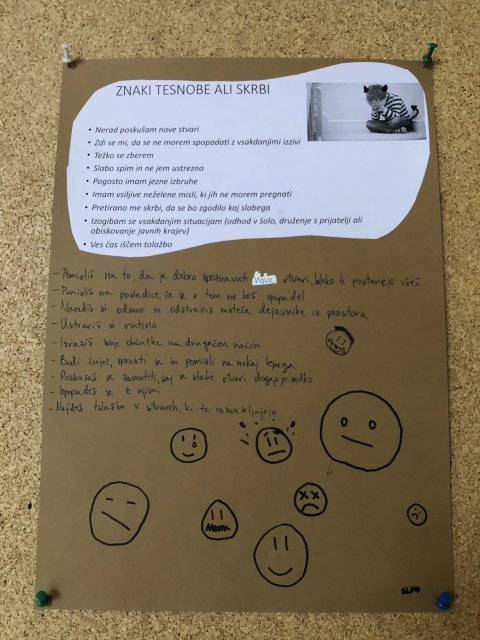 ZNAKI TESNOBE ALI SKRBI
• Nerad poskušam nove stvari
• Zdi se mi, da se ne morem spopadati z vsakdanjimi izzivi
• Težko se zberem
• Slabo spim in ne jem ustrezno
• Pogosto imam jezne izbruhe
• Imam vsiljive neželene misli, ki jih ne morem pregnati
• Pretirano me skrbi, da se bo zgodilo kaj slabega
• Izogibam se vsakdanjim situacijam (odhod v šolo, druženje s prijatelji ali
obiskovanje javnih krajev)
• Ves čas iščem tolažbo
- Pomisliš na to, da je dobro spoznavati nove stvari, lahko ti postanejo všeč
- Pomisliš na posledice, če se s tem ne boš spopadel
- Narediš si odmor in odstraniš moteče dejavnike iz prostora
- Ustvariš si rutino
- Izraziš svoje občutke na drugačen način
- Bodi čuječ, sprosti se in pomisli na nekaj lepega
- Poskušaš se zamotiti, saj se slabe stvari dogajajo redko
- Spopadeš se z njimi
- Najdeš tolažbo v stvareh, ki te razveseljujejo